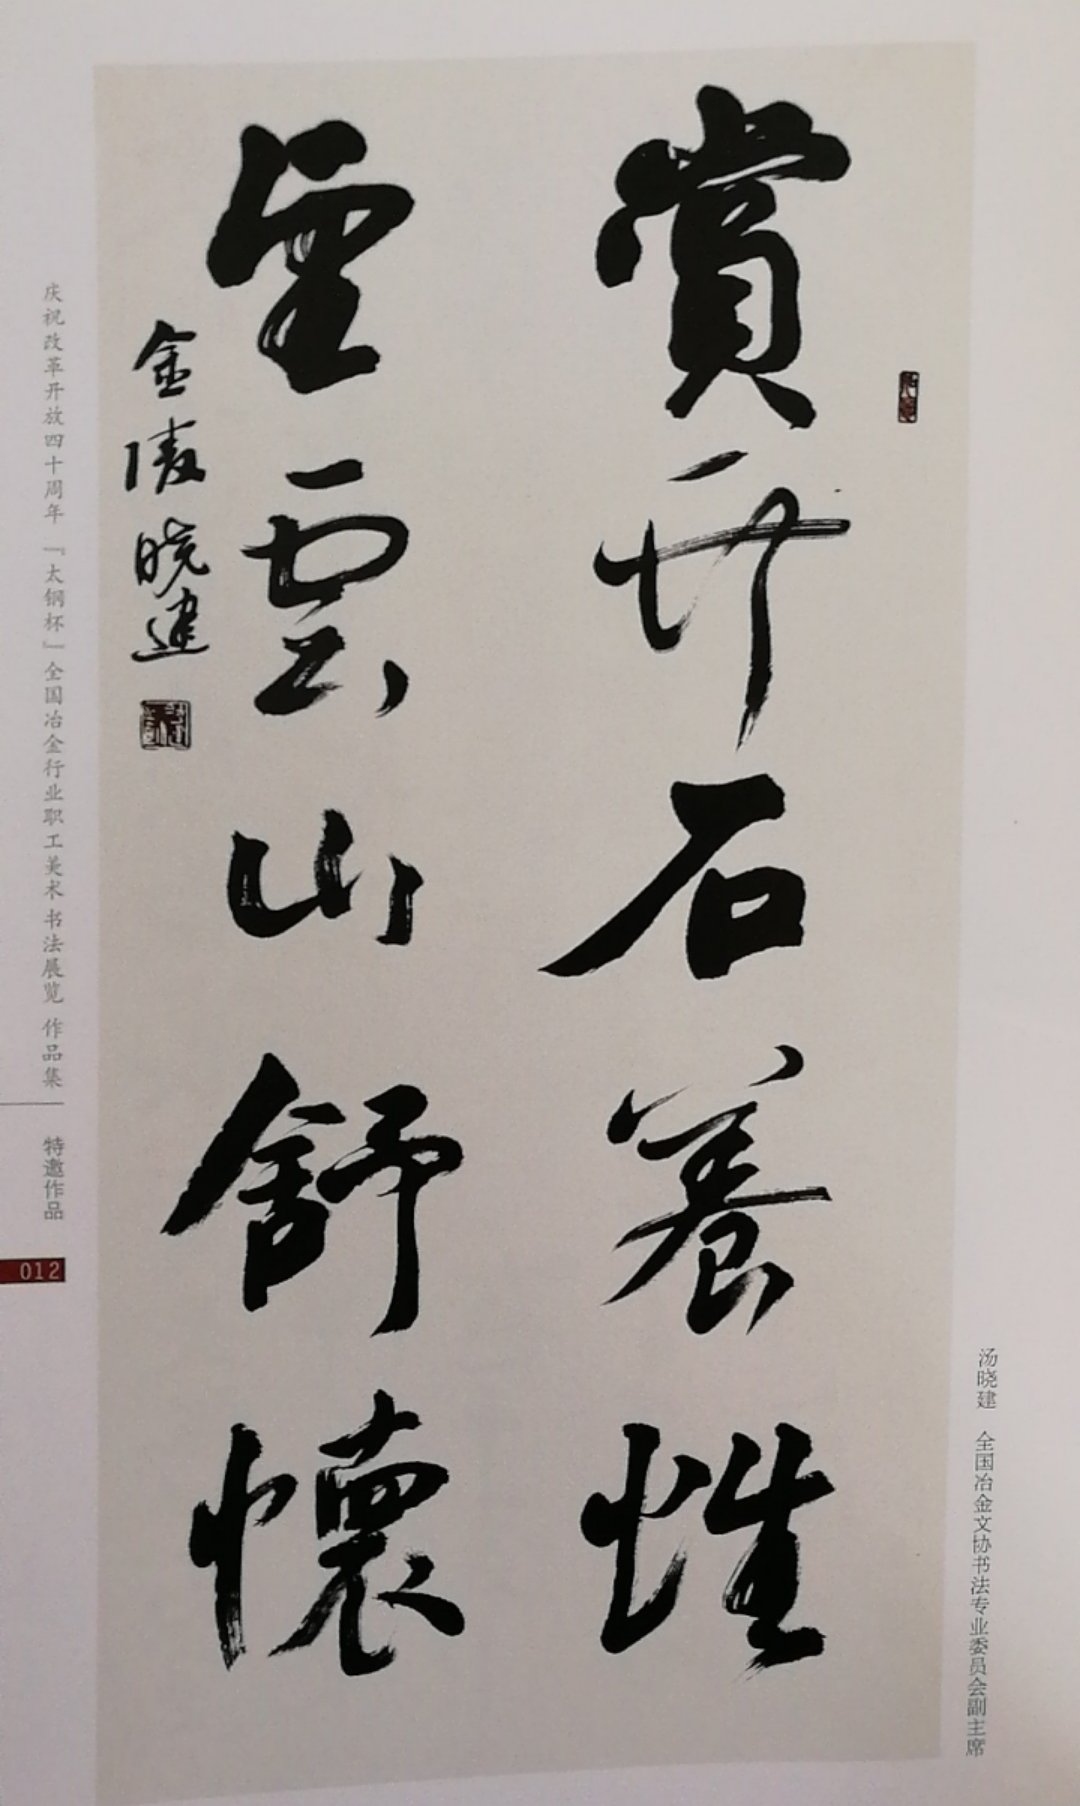 賞竹石養性
望雲山舒懷
金陵晓建
汤晓建 全国冶金文协书法专业委员会副主席
庆祝改革开放四十周年 『太钢杯』全国冶金行业职工美术书法展览 作品集
特邀作品
012